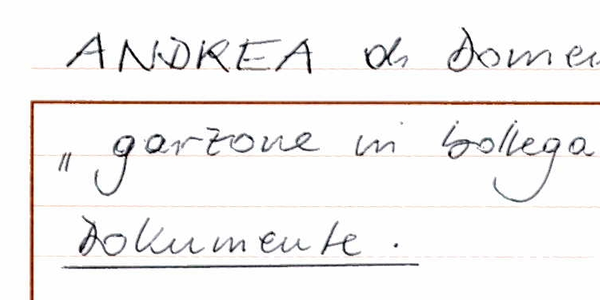 ANDREA di Domen
„ garzone in bottega
Dokumente.